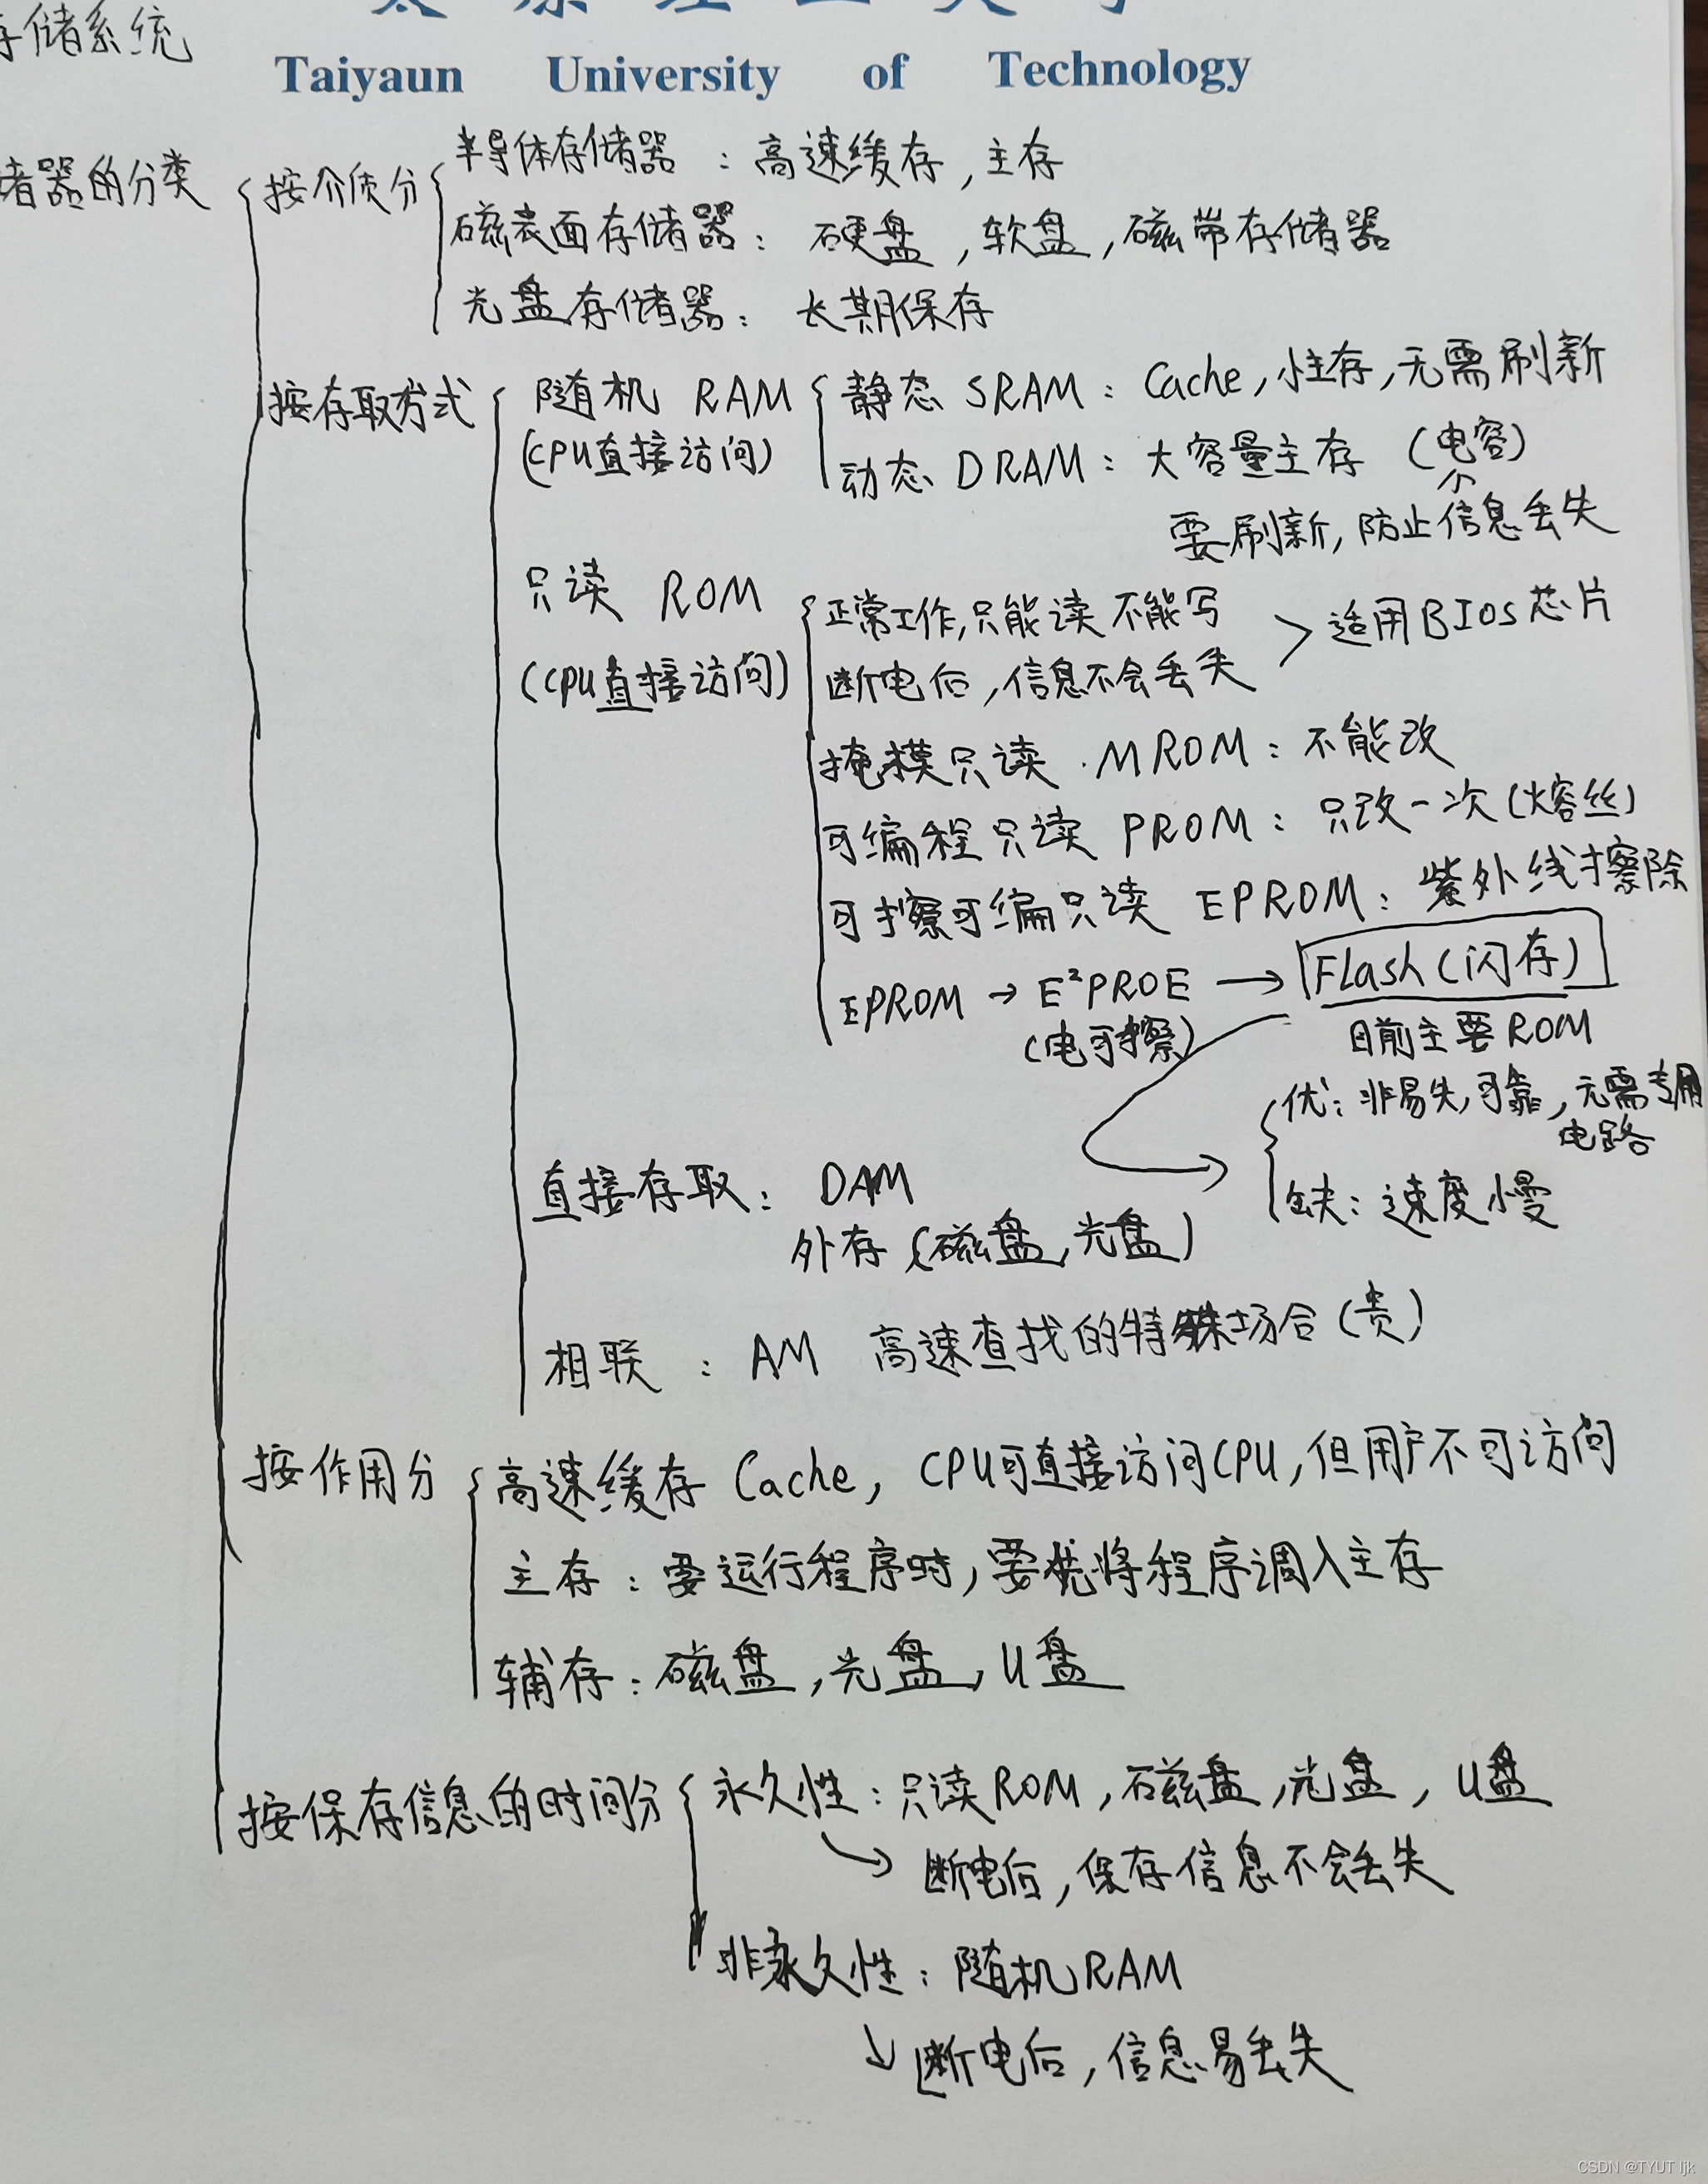 存储系统
Taiyaun University of Technology
储器的分类
按介质分
半导体存储器：高速缓存，主存
磁表面存储器：硬盘，软盘，磁带存储器
光盘存储器：长期保存
按存取方式
随机 RAM
(CPU直接访问)
静态 SRAM：Cache，小主存，无需刷新
动态 DRAM：大容量主存 (电容)
要刷新，防止信息丢失
只读 ROM
(CPU直接访问)
正常工作，只能读不能写
断电后，信息不会丢失
> 适用BIOS芯片
掩模只读 MROM：不能改
可编程只读 PROM：只改一次(熔丝)
可擦可编只读 EPROM：紫外线擦除
EPROM → E²PROE → Flash(闪存)
(电可擦)
目前主要ROM
优：非易失，可靠，无需专用
电路
缺：速度慢
直接存取：DAM
外存(磁盘，光盘)
相联：AM 高速查找的特殊场合(贵)
按作用分
高速缓存 Cache，CPU可直接访问CPU，但用户不可访问
主存：要运行程序时，要先将程序调入主存
辅存：磁盘，光盘，U盘
按保存信息的时间分
永久性：只读ROM，磁盘，光盘，U盘
→ 断电后，保存信息不会丢失
非永久性：随机RAM
↓ 断电后，信息易丢失
CSDN @TYUT ljk